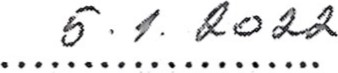 5. 1. 2022